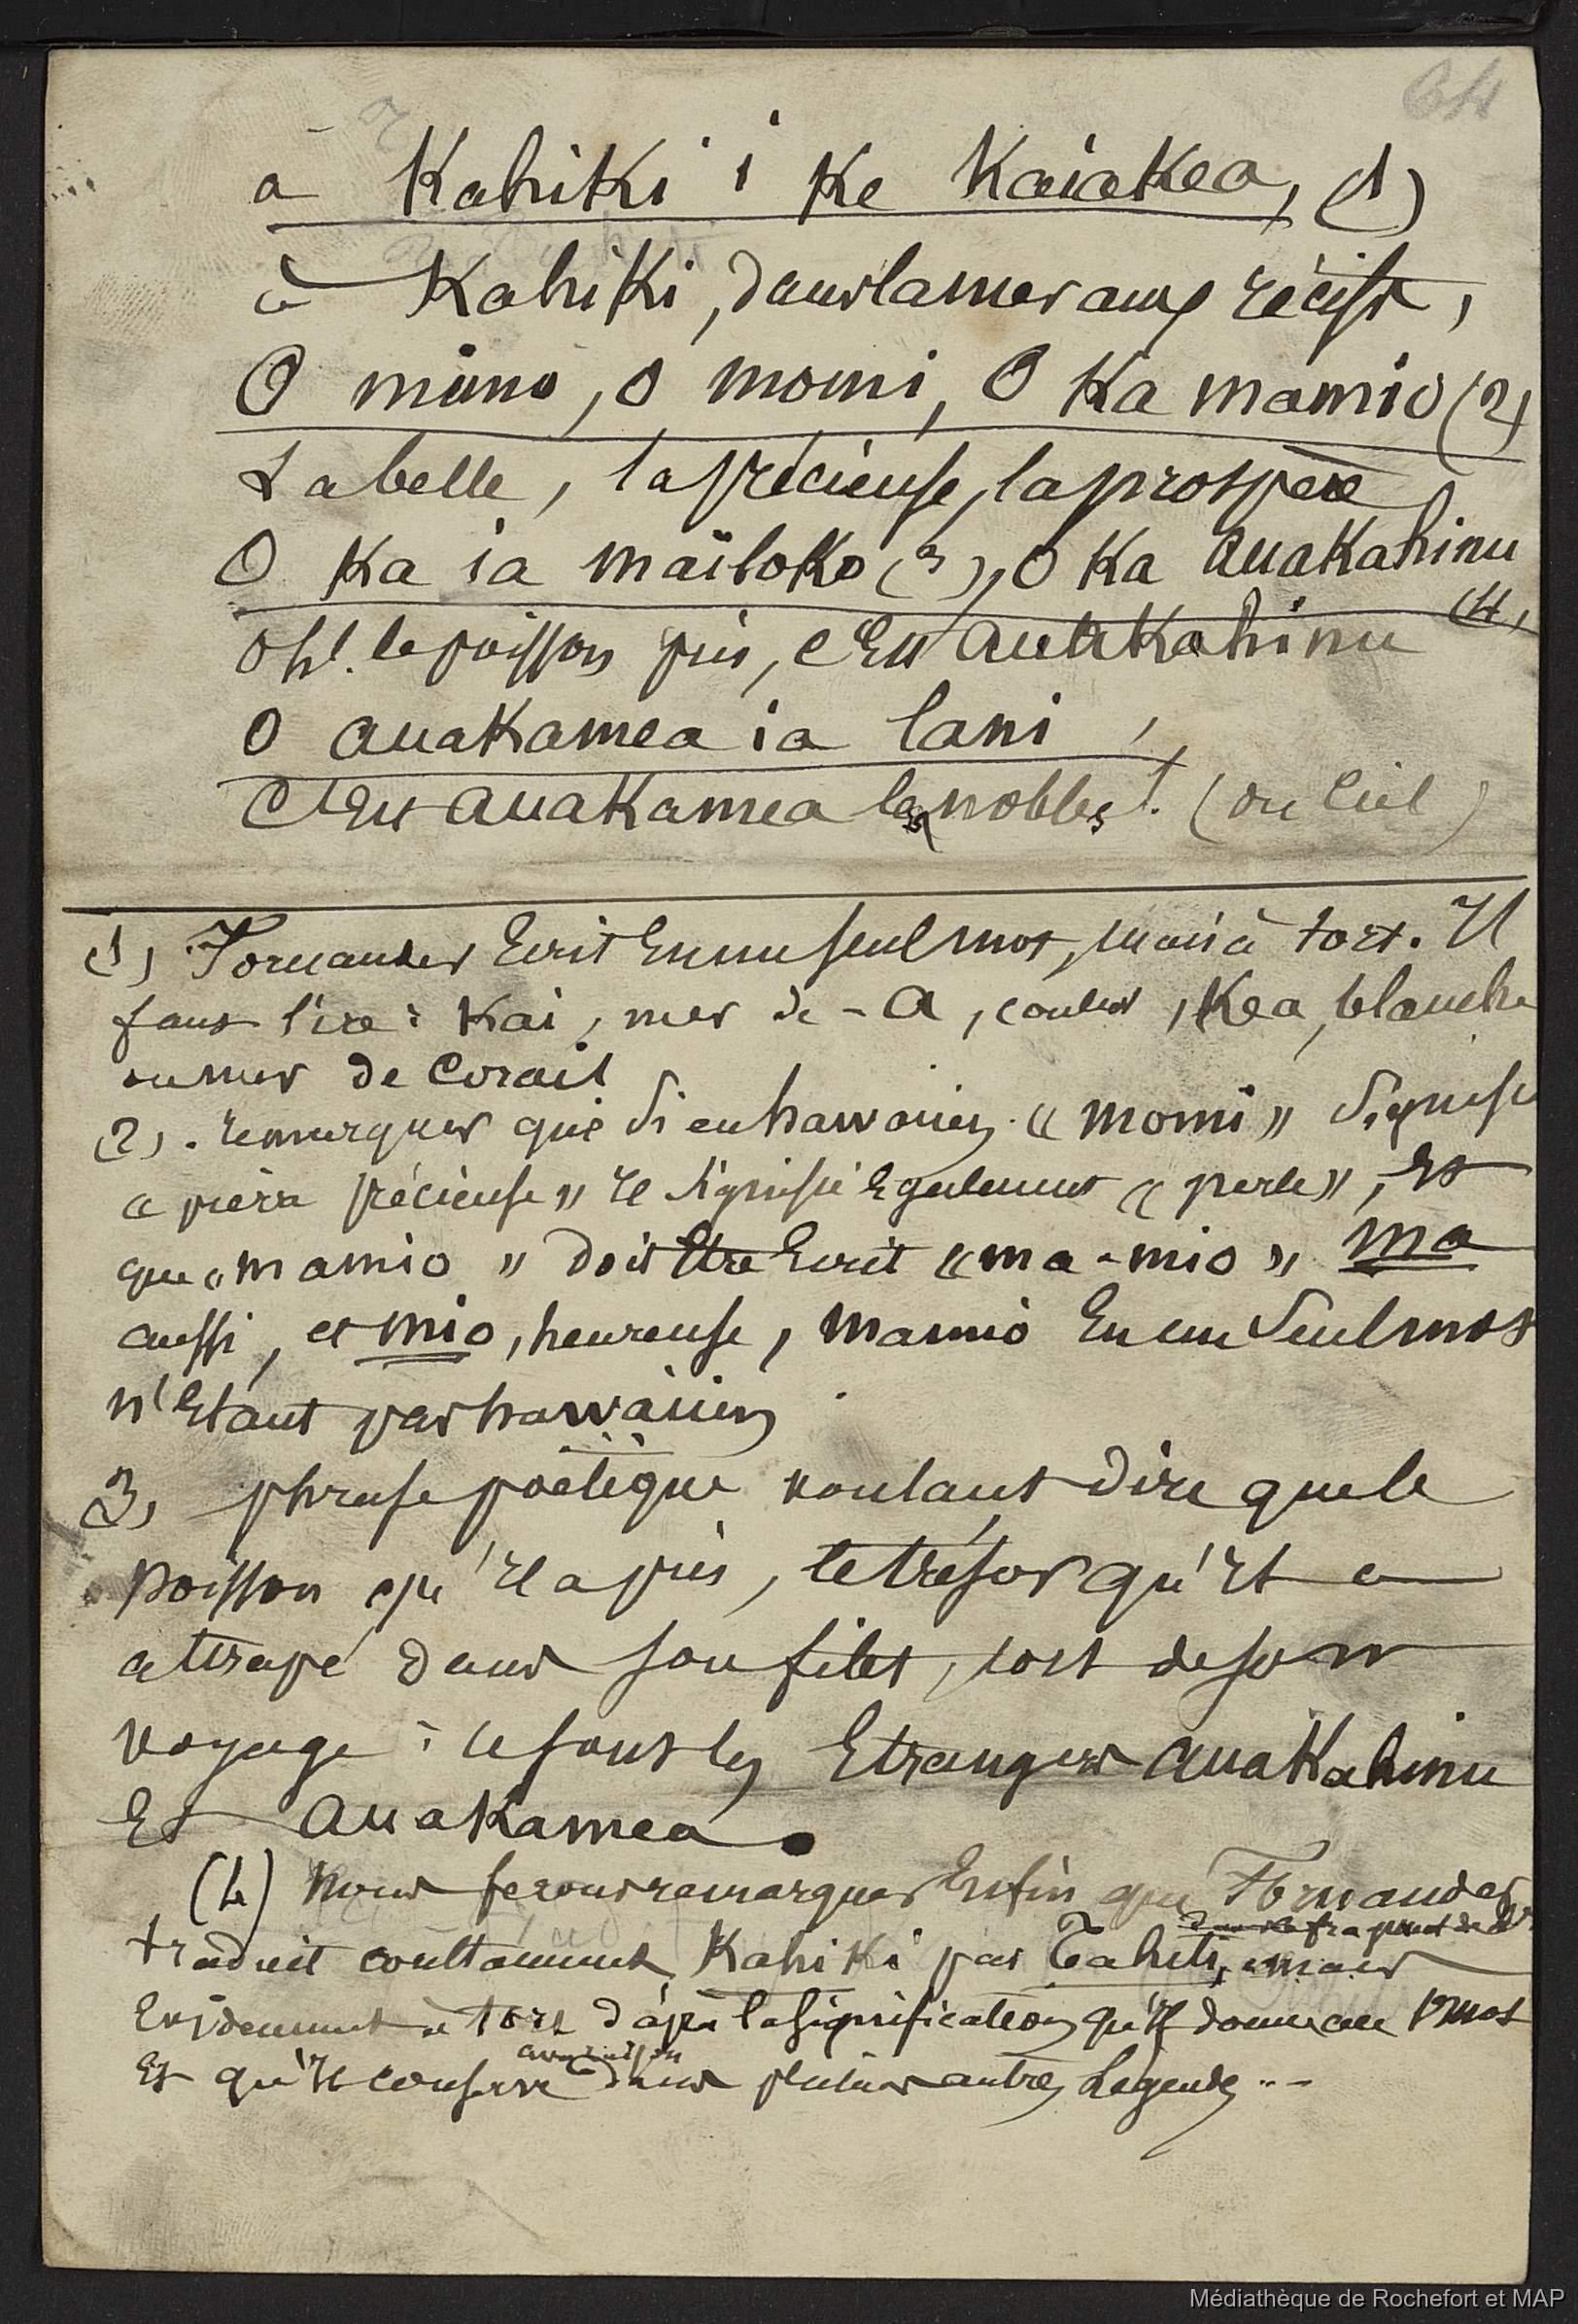 64
a Kahiki i Ke Kaiakea, (1)
à Kahiki, dans la mer aux récifs,
O mimo, o momi, O Ka mamio (2)
La belle, la précieuse, la prospère
O Ka ia mailoko (3), O Ka auaKahinu
(4)
Oh! le poisson pris, c'est auaKahinu
O auaKamea ia lani,
C'est auaKamea les nobles! (ou Ciel)
(1) Fornander Ecrit En un seul mot, mais à tort. Il
faut lire: Kai, mer de - a, couleur, Kea, blanche
ou mer de Corail
(2). remarquer que si en hawaiien « momi » signifie
« pierre précieuse » Il signifie Egalement « perle », Et
que « mamio » doit Etre Ecrit « ma-mio » ma
aussi, et mio, heureuse, mamio En un Seul mot
n'Etant pas hawaiien
3) phrase poétique voulant dire que le
poisson qu'Il a pris, le trésor qu'Il a
attrapé dans son filet, lors de son
voyage: ce sont les Etrangers auaKahinu
Et auaKamea.
(4) Nous ferons remarquer Enfin que Fornander
traduit Kahiki par Tahiti, mais
Evidemment à tort d'après la signification qu'Il donne au mot
Et qu'Il conserve dans plusieurs autres Légendes...
Médiathèque de Rochefort et MAP